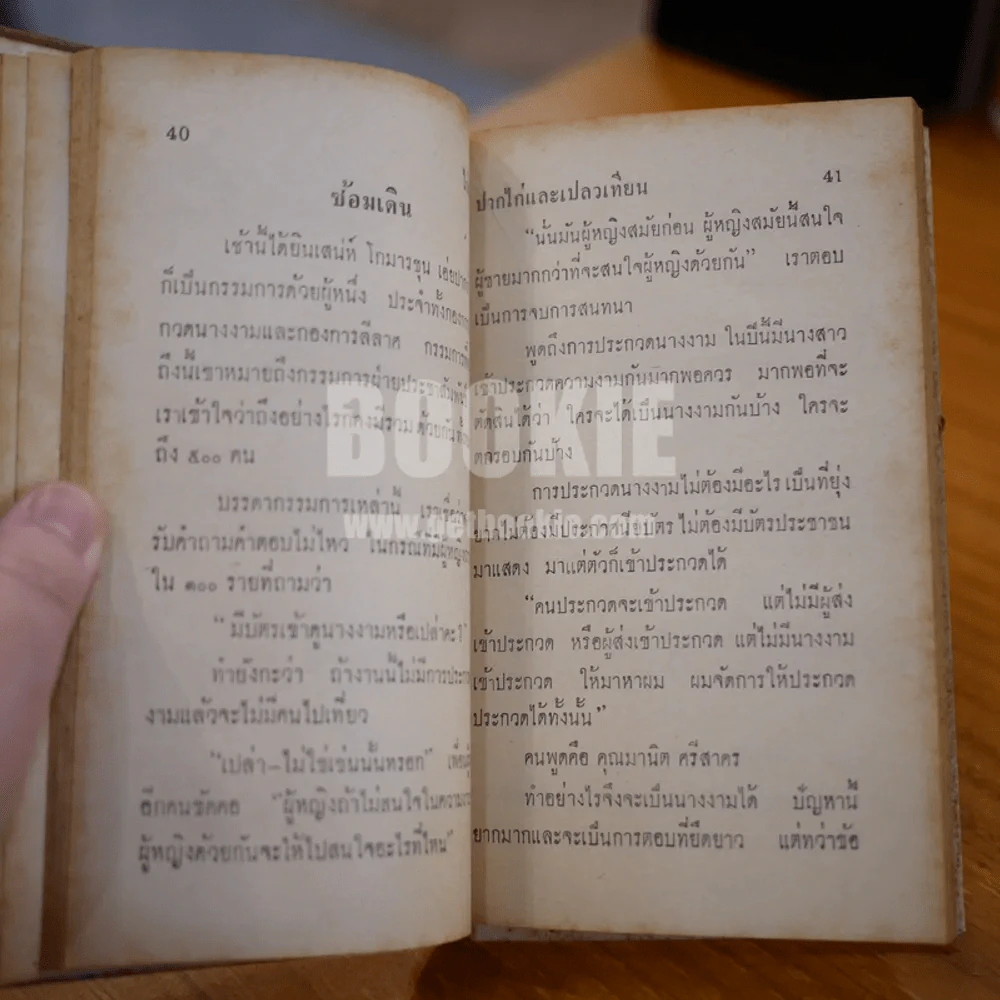 40
ซ้อมเดิน
เช้านี้ได้ยินเสน่ห์ โกมารชุน เอ่ยปาก
ก็เป็นกรรมการด้วยผู้หนึ่ง ประจำทั้งกองการ
กวดนางงามและกองการลีลาศ กรรมการที่
ถึงนี้เขาหมายถึงกรรมการฝ่ายประชาสัมพันธ์
เราเข้าใจว่าถึงอย่างไรก็คงมีรวมด้วยกัน
ถึง ๕๐๐ คน
บรรดากรรมการเหล่านี้ เรารู้ว่า
รับคำถามคำตอบไม่ไหว ในกรณีที่มีผู้หญิง
ใน ๓๐๐ รายที่ถามว่า
“มีบัตรเข้าดูนางงามหรือเปล่าคะ?”
ทำยังกะว่า ถ้างานนี้ไม่มีการประกวด
งามแล้วจะไม่มีคนไปเที่ยว
“เปล่า-ไม่ใช่เช่นนั้นหรอก” เพื่อน
อีกคนขัดคอ “ผู้หญิงถ้าไม่สนใจในความงาม
ผู้หญิงด้วยกันจะให้ไปสนใจอะไรที่ไหน”
ปากไก่และเปลวเทียน
41
“นั่นมันผู้หญิงสมัยก่อน ผู้หญิงสมัยนี้สนใจ
ผู้ชายมากกว่าที่จะสนใจผู้หญิงด้วยกัน” เราตอบ
เป็นการจบการสนทนา
พูดถึงการประกวดนางงาม ในปีนี้มีนางสาว
เข้าประกวดความงามกันมากพอควร มากพอที่จะ
ตัดสินได้ว่า ใครจะได้เป็นนางงามกันบ้าง ใครจะ
ตกรอบกันบ้าง
การประกวดนางงามไม่ต้องมีอะไรเป็นที่ยุ่ง
ยากไม่ต้องมีประกาศนียบัตร ไม่ต้องมีบัตรประชาชน
มาแสดง มาแต่ตัวก็เข้าประกวดได้
“คนประกวดจะเข้าประกวด แต่ไม่มีผู้ส่ง
เข้าประกวด หรือผู้ส่งเข้าประกวด แต่ไม่มีนางงาม
เข้าประกวด ให้มาหาผม ผมจัดการให้ประกวด
ประกวดได้ทั้งนั้น”
คนพูดคือ คุณมานิต ศรีสาคร
ทำอย่างไรจึงจะเป็นนางงามได้ ปัญหานี้
ยากมากและจะเป็นการตอบที่ยืดยาว แต่ทว่าข้อ
BOOKIE
www.getbookie.com